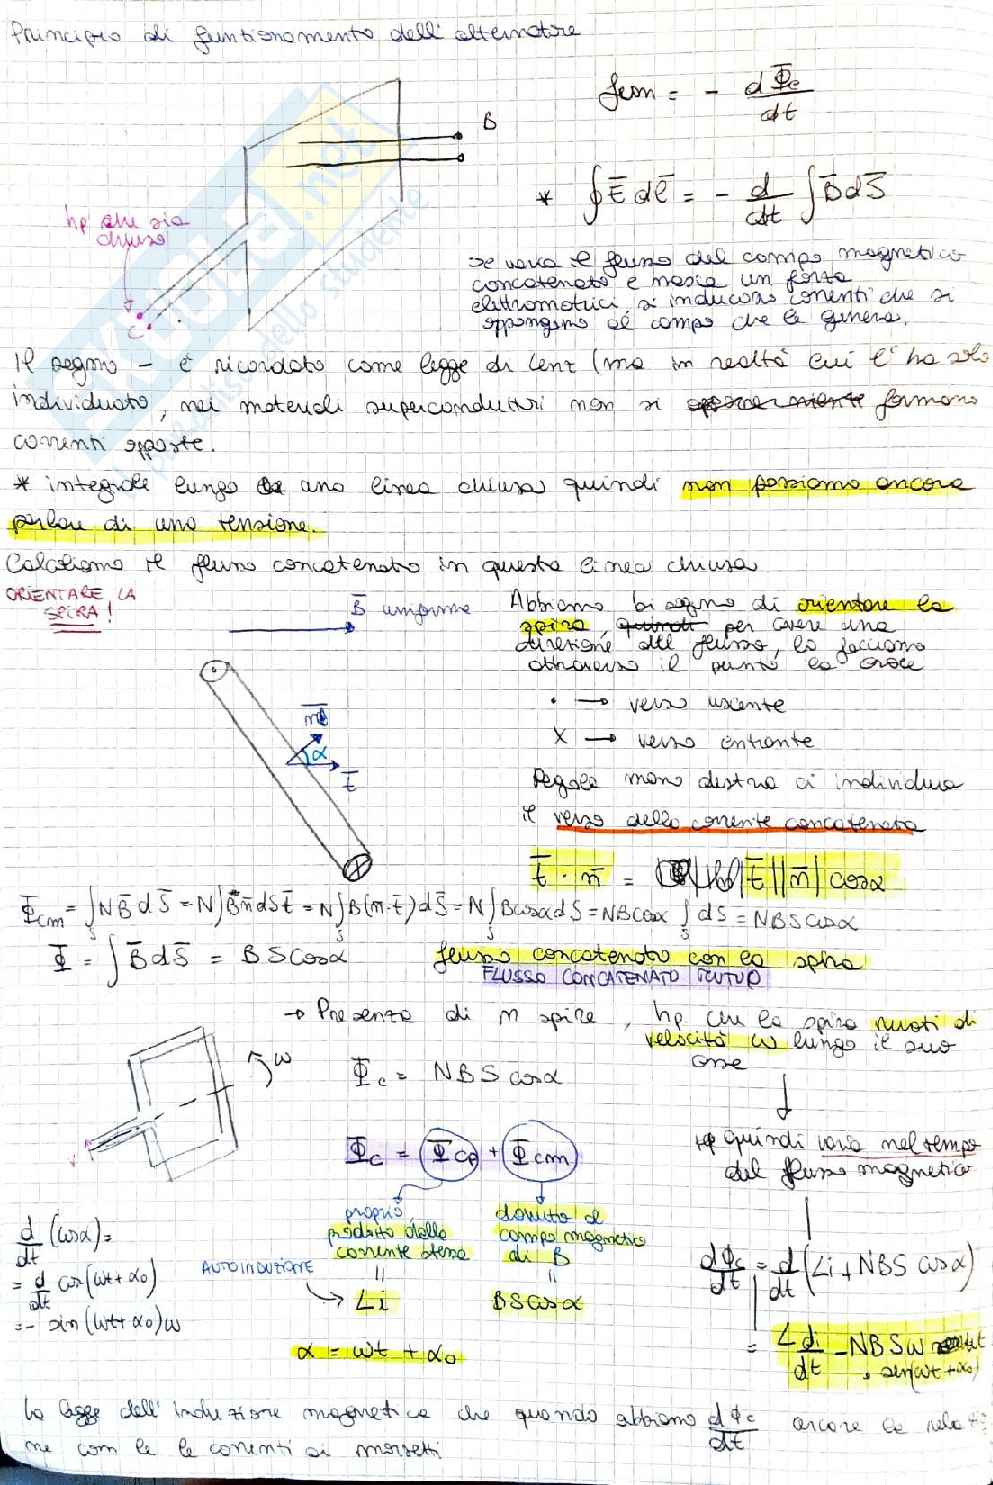 Principio di funzionamento dell'alternatore
fem = - dΦ̄c/dt
B
* ∮Ē dē = - d/dt ∫B̄dS̄
hp che sia
chiusa
c
se varia il flusso del campo magnetico
concatenato e nasce un forza
elettromotrici, si inducono correnti che si
oppongono al campo che le genera.
Il segno - è ricordato come legge di Lenz (ma in realtà lui l'ha solo
individuato, nei materiali superconduttori non si formano
correnti opposte.
* integrale lungo una linea chiusa quindi non possiamo ancora
parlare di una tensione.
Calcoliamo il flusso concatenato in questa linea chiusa
ORIENTARE LA
SPIRA!
B̄ uniforme
Abbiamo bisogno di orientare la
spira, per avere una
direzione del flusso, lo facciamo
attraverso il punto e la croce
· → verso uscente
x → verso entrante
n̄
α
t̄
Regola mano destra ci individua
il verso della corrente concatenata
t̄ · n̄ = |t̄||n̄| cosα
Φ̄cm = ∫NB̄dS̄ = N∫B̄n̄dS t̄ = N∫B(n̄·t̄)dS̄ = N∫Bcosα dS = NBcosα ∫dS = NBScosα
s s s s
Φ̄ = ∫B̄dS̄ = BScosα flusso concatenato con la spira
FLUSSO CONCATENATO TUTUP
→ Presenza di n spire, hp che la spira ruoti di
velocità ω lungo il suo
asse
ω
Φ̄c = NBS cosα
hp quindi varia nel tempo
del flusso magnetico
Φ̄c = Φ̄cp + Φ̄cm
proprio,
prodotto dalla
corrente stessa
=
Li
AUTOINDUZIONE
dovuto al
campo magnetico
di B
=
BScosα
d/dt (cosα) =
= d/dt cos(ωt+α₀)
= - sin(ωt+α₀)ω
dΦc/dt = d/dt (Li + NBS cosα)
= L di/dt - NBSω · sen(ωt+α₀)
α = ωt + α₀
La legge dell'induzione magnetica che quando abbiamo dΦc/dt ancora la relazio
ne con le correnti ai morsetti